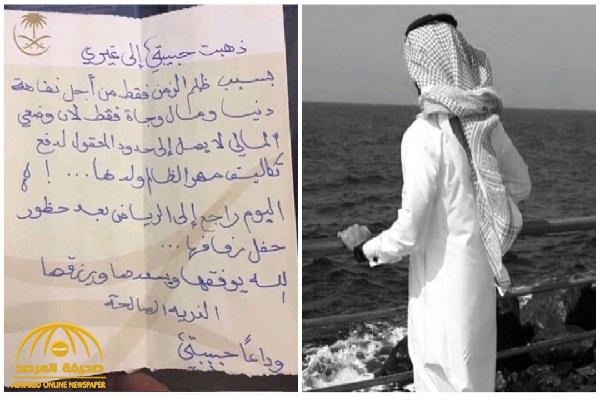 ذهبت حبيبتي إلى غيري
بسبب ظلم الزمن فقط من أجل تفاهة
دنيا ومال وجاة فقط لأن وضعي
المالي لا يصل إلى حدود المعقول لدفع
تكاليف مهر الظالم ولدها ... !
اليوم راجع إلى الرياض بعد حظور
حفل زفافها ...
الله يوفقها ويسعدها ويرزقها
الذريه الصالحة
وداعاً حبيبتي
صحيفة المرصد
NEWS ONLINE NEWSPAPER